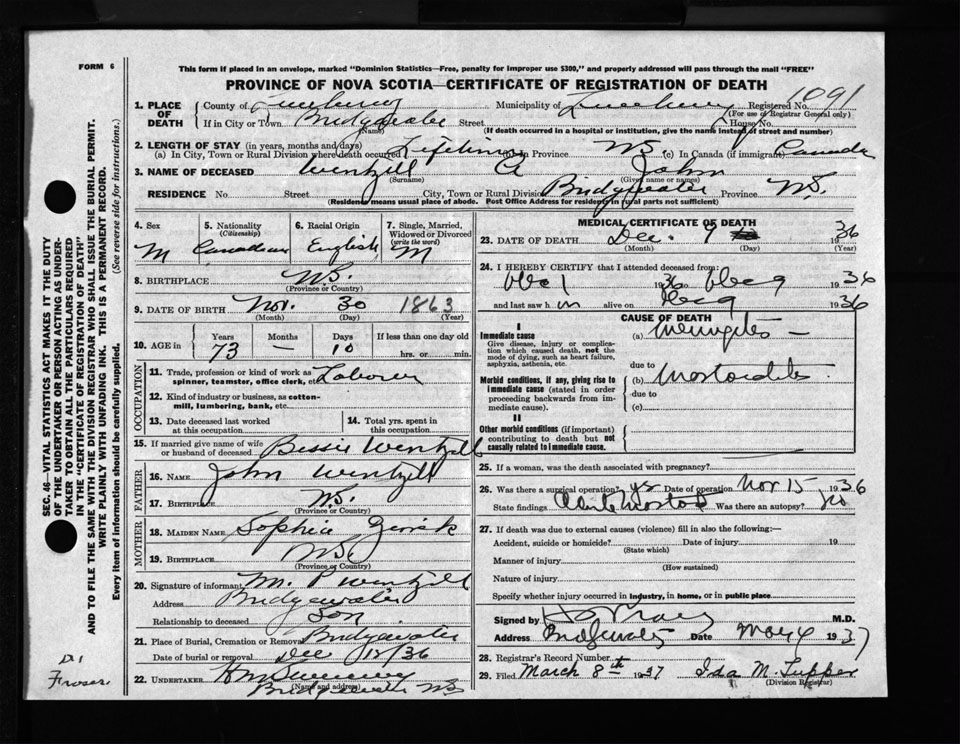 FORM 6
This form if placed in an envelope, marked "Dominion Statistics—Free, penalty for improper use $300," and properly addressed will pass through the mail "FREE"
PROVINCE OF NOVA SCOTIA—CERTIFICATE OF REGISTRATION OF DEATH
1. PLACE OF DEATH County of Lunenburg Municipality of Lunenburg Registered No. 1091
(For use of Registrar General only)
If in City or Town Bridgewater Street House No.
(Name) (If death occurred in a hospital or institution, give the name instead of street and number)
2. LENGTH OF STAY (in years, months and days)
(a) In City, Town or Rural Division where death occurred Lifetime (b) in Province NS (c) In Canada (if immigrant) Canada
3. NAME OF DECEASED Wentzell A John
(Surname) (Given name or names)
RESIDENCE No. Street City, Town or Rural Division Bridgewater Province NS.
(Residence means usual place of abode. Post Office Address for residents in rural parts not sufficient)
4. Sex M
5. Nationality (Citizenship) Canadian
6. Racial Origin English
7. Single, Married, Widowed or Divorced (write the word) M
8. BIRTHPLACE NS.
(Province or Country)
9. DATE OF BIRTH Nov. 30 1863
(Month) (Day) (Year)
10. AGE in Years 73 Months — Days 10 If less than one day old hrs. or min.
OCCUPATION
11. Trade, profession or kind of work as spinner, teamster, office clerk, etc. Laborer
12. Kind of industry or business, as cotton-mill, lumbering, bank, etc.
13. Date deceased last worked at this occupation
14. Total yrs. spent in this occupation
15. If married give name of wife or husband of deceased Bessie Wentzell
FATHER
16. NAME John Wentzell
17. BIRTHPLACE NS.
(Province or Country)
MOTHER
18. MAIDEN NAME Sophia
19. BIRTHPLACE NS
(Province or Country)
20. Signature of informant M. P Wentzell
Address Bridgewater
Relationship to deceased Son
21. Place of Burial, Cremation or Removal Bridgewater
Date of burial or removal Dec /36
22. UNDERTAKER
(Name and address)
Bridgewater NS
MEDICAL CERTIFICATE OF DEATH
23. DATE OF DEATH Dec. 9 1936
(Month) (Day) (Year)
24. I HEREBY CERTIFY that I attended deceased from:
Dec 1 1936 to Dec 9 1936
and last saw h im alive on Dec 9 1936
CAUSE OF DEATH
I
Immediate cause
Give disease, injury or complication which caused death, not the mode of dying, such as heart failure, asphyxia, asthenia, etc.
(a) Meningitis —
due to
Morbid conditions, if any, giving rise to immediate cause (stated in order proceeding backwards from immediate cause).
(b) Mastoiditis
due to
(c)
II
Other morbid conditions (if important) contributing to death but not causally related to immediate cause.
25. If a woman, was the death associated with pregnancy?
26. Was there a surgical operation? yes Date of operation Nov 15 1936
State findings Acute Mastoid Was there an autopsy? no
27. If death was due to external causes (violence) fill in also the following:—
Accident, suicide or homicide? Date of injury 19
(State which)
Manner of injury
(How sustained)
Nature of injury
Specify whether injury occurred in industry, in home, or in public place
Signed by M.D.
Address Bridgewater Date May 1937
28. Registrar's Record Number
29. Filed March 8th 1937 Ida M. Tupper
(Division Registrar)
SEC. 46—VITAL STATISTICS ACT MAKES IT THE DUTY
OF THE UNDERTAKER OR PERSON ACTING AS UNDER-
TAKER TO OBTAIN ALL THE PARTICULARS REQUIRED
IN THE "CERTIFICATE OF REGISTRATION OF DEATH"
AND TO FILE THE SAME WITH THE DIVISION REGISTRAR WHO SHALL ISSUE THE BURIAL PERMIT.
WRITE PLAINLY WITH UNFADING INK. THIS IS A PERMANENT RECORD.
Every item of information should be carefully supplied. (See reverse side for instructions.)
Fraser